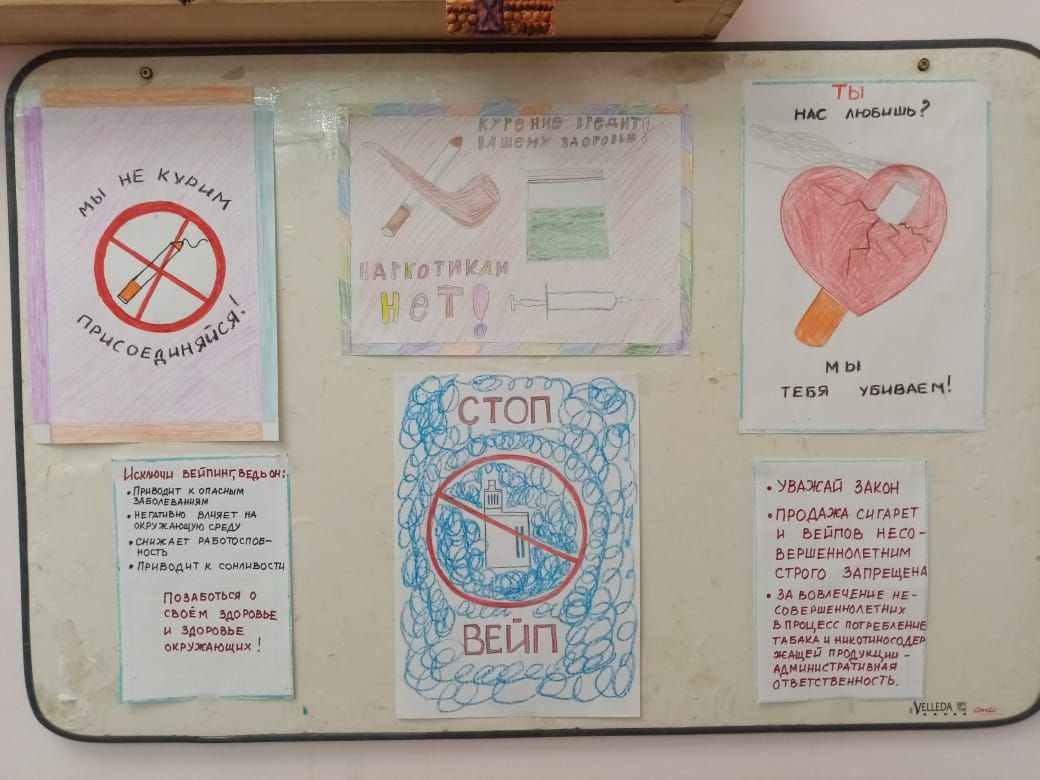 МЫ НЕ КУРИМ
ПРИСОЕДИНЯЙСЯ!
КУРЕНИЕ ВРЕДИТ
ВАШЕМУ ЗДОРОВЬЮ!
НАРКОТИКАМ
НЕТ!
ТЫ
НАС ЛЮБИШЬ?
МЫ
ТЕБЯ УБИВАЕМ!
ИСКЛЮЧИ ВЕЙПИНГ, ВЕДЬ ОН:
• ПРИВОДИТ К ОПАСНЫМ
ЗАБОЛЕВАНИЯМ
• НЕГАТИВНО ВЛИЯЕТ НА
ОКРУЖАЮЩУЮ СРЕДУ
• СНИЖАЕТ РАБОТОСПОБ-
НОСТЬ
• ПРИВОДИТ К СОНЛИВОСТИ
ПОЗАБОТЬСЯ О
СВОЁМ ЗДОРОВЬЕ
И ЗДОРОВЬЕ
ОКРУЖАЮЩИХ!
СТОП
ВЕЙП
• УВАЖАЙ ЗАКОН
• ПРОДАЖА СИГАРЕТ
И ВЕЙПОВ НЕСО-
ВЕРШЕННОЛЕТНИМ
СТРОГО ЗАПРЕЩЕНА
• ЗА ВОВЛЕЧЕНИЕ НЕ-
СОВЕРШЕННОЛЕТНИХ
В ПРОЦЕСС ПОТРЕБЛЕНИЕ
ТАБАКА И НИКОТИНОСОДЕР
ЖАЩЕЙ ПРОДУКЦИИ -
АДМИНИСТРАТИВНАЯ
ОТВЕТСТВЕННОСТЬ.
VELLEDA